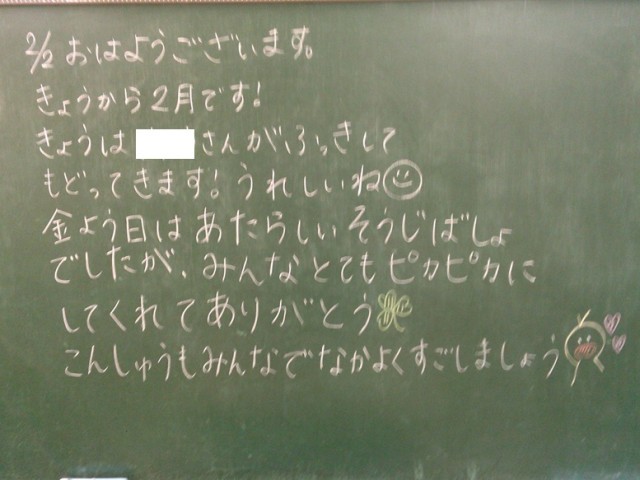 2/2 おはようございます。
きょうから2月です!
きょうは さんがふっきして
もどってきます!うれしいね
金よう日はあたらしいそうじばしょ
でしたが、みんなとてもピカピカに
してくれてありがとう
こんしゅうもみんなでなかよくすごしましょう